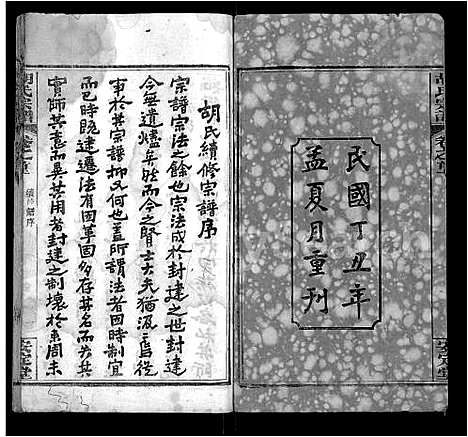 民國丁丑年
孟夏月重刊
胡氏續修宗譜序
宗譜宗法之餘也宗法成於封建之世封建
今無遺燼矣然而今之賢士大夫猶汲汲焉從
事於其宗譜抑又何也蓋所謂法者因時制宜
而已時既建遷法有因革固多存其名而
實師其意而異其用者封建之制壞於東周末
胡氏宗譜
卷之首